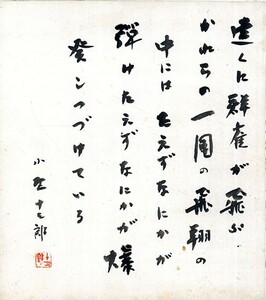 遠くに群雀が飛ぶ
かれらの一団の飛翔の
中には たえずなにかが
弾けたえずなにかが爆
発しつづけている
小野十三郎